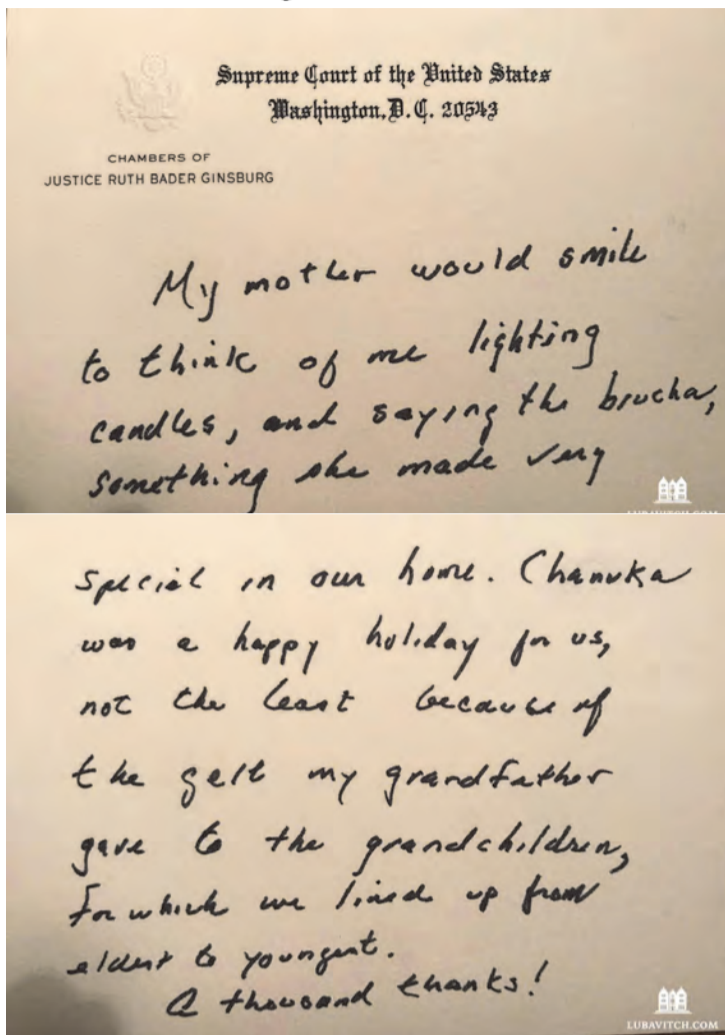 Supreme Court of the United States
Washington, D.C. 20543
CHAMBERS OF
JUSTICE RUTH BADER GINSBURG
My mother would smile
to think of me lighting
candles, and saying the brucha,
something she made very
LUBAVITCH.COM
special in our home. Chanuka
was a happy holiday for us,
not the least because of
the gelt my grandfather
gave to the grandchildren,
for which we lined up from
eldest to youngest.
A thousand thanks!
LUBAVITCH.COM